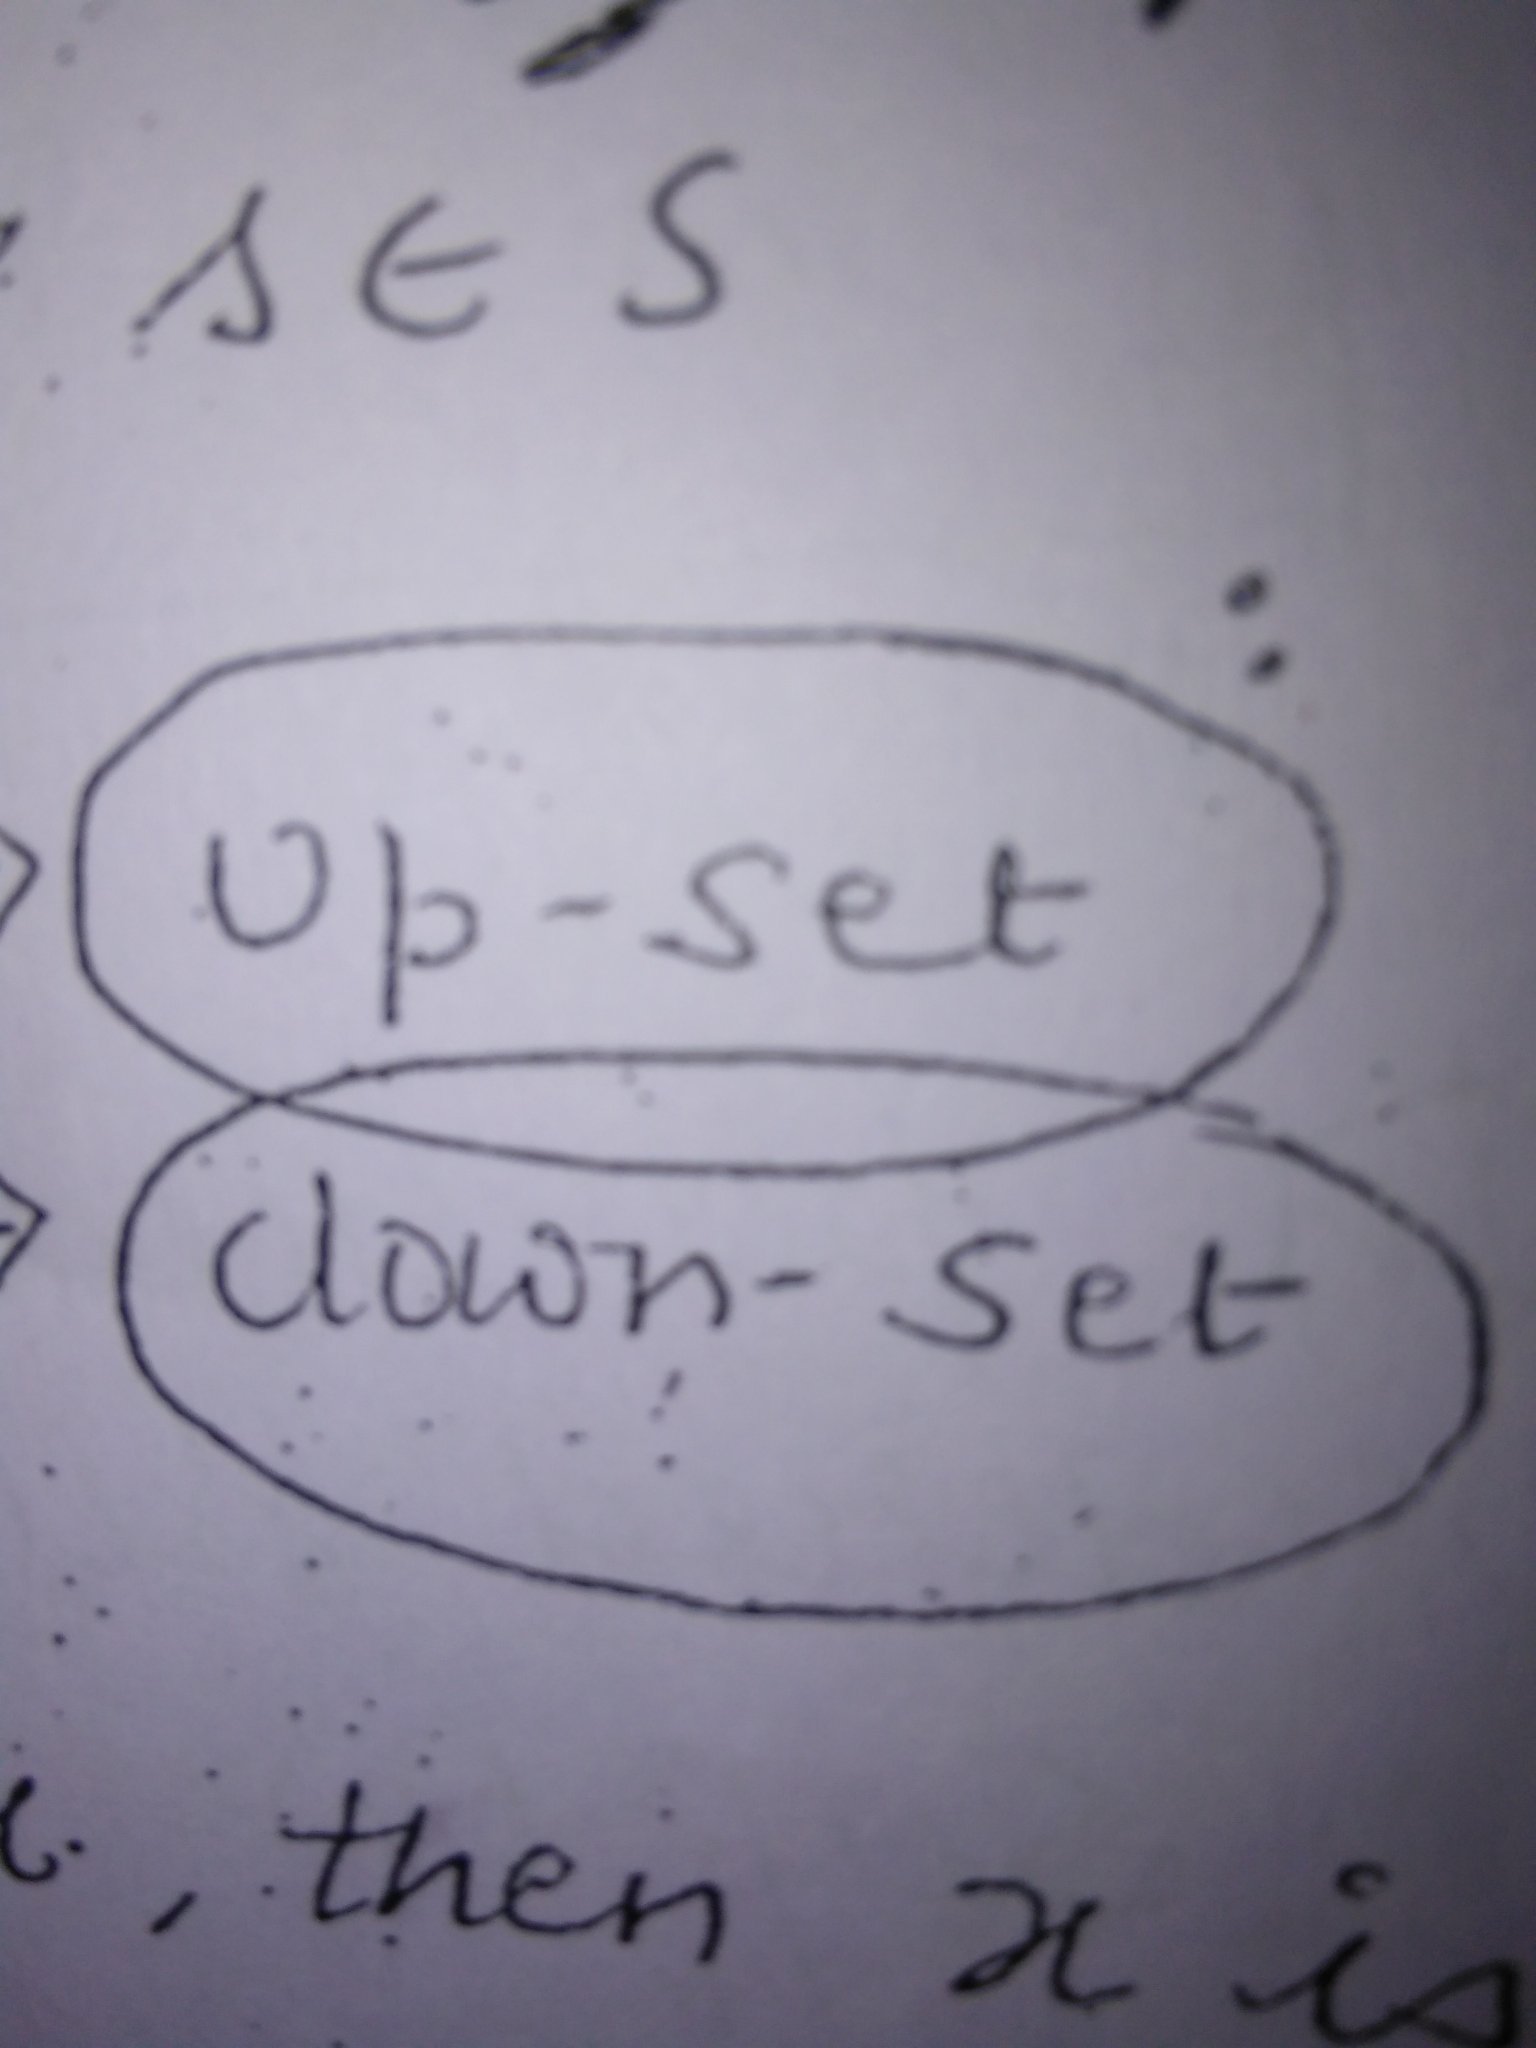 s ∈ S
Up-set
down-set
, then x is